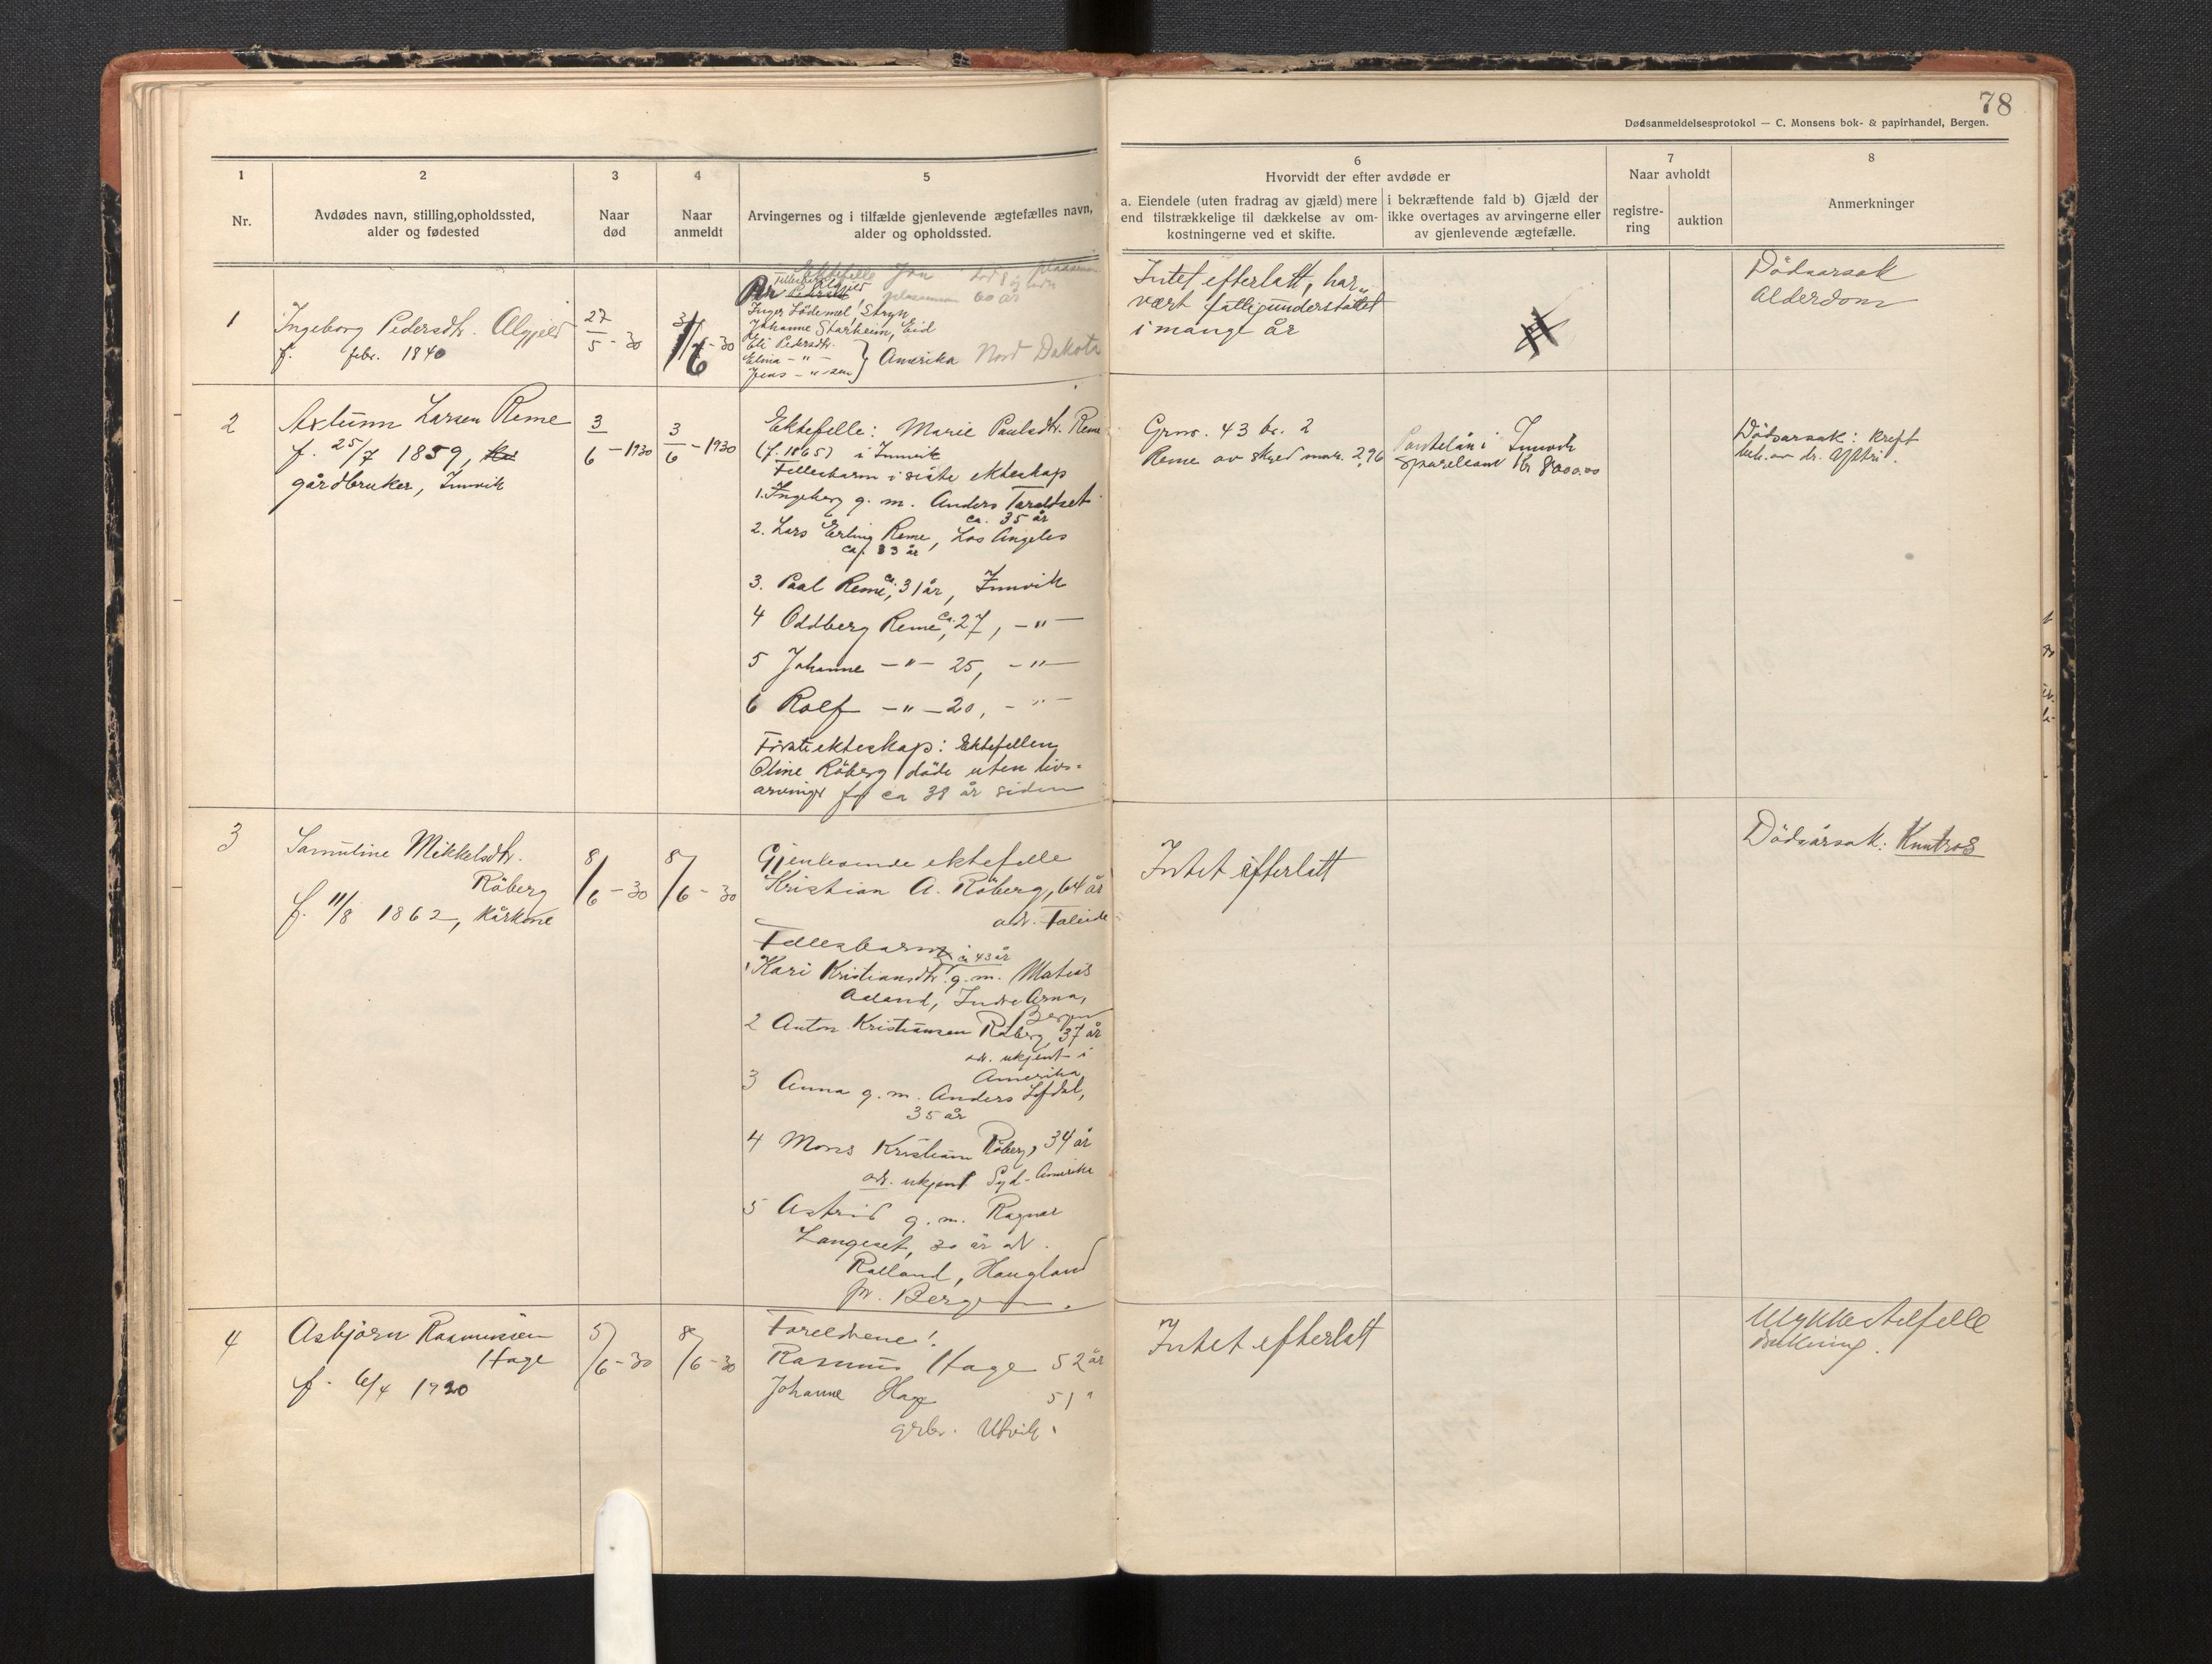 78
Dødsanmeldelsesprotokol — C. Monsens bok- & papirhandel, Bergen.
1
Nr.
2
Avdødes navn, stilling, opholdssted,
alder og fødested
3
Naar
død
4
Naar
anmeldt
5
Arvingernes og i tilfælde gjenlevende ægtefælles navn,
alder og opholdssted.
6
Hvorvidt der efter avdøde er
a. Eiendele (uten fradrag av gjæld) mere
end tilstrækkelige til dækkelse av om-
kostningerne ved et skifte.
i bekræftende fald b) Gjæld der
ikke overtages av arvingerne eller
av gjenlevende ægtefælle.
7
Naar avholdt
registre-
ring
auktion
8
Anmerkninger
1
Ingeborg Pedersdtr. Algjeld
f. febr. 1840
27/5 - 30
/6 - 30
Ektefelle Jon
60 år
Inger Lödemel, Stryn
Johanne Starheim, Eid
Eli Pedersdtr.
Elina - " -
Jens - " - sen } Amerika Nord Dakota
Intet efterlatt, har
vært fattigunderstöttet
i mange år
Dödsårsak
Alderdom
2
Larsen Reme
f. 25/7 1859,
gårdbruker, Innvik
3/6 - 1930
3/6 - 1930
Ektefelle: Marie Paulsdtr. Reme
(f. 1865) i Innvik
Fellesbarn i siste ekteskap
1. Ingeborg g. m. Anders Taraldset
ca. 35 år
2. Lars Erling Reme, Los Angeles
ca. 33 år
3. Paal Reme, ca. 31 år, Innvik
4 Oddberg Reme, ca. 27, - " -
5 Johanne - " - 25, - " -
6 Rolf - " - 20, - " -
Första ekteskap: Ektefellen
Oline Röberg döde uten livs-
arvinger for ca 38 år siden
Grnr. 43 br. 2
Reme av skyld mark 2,96
Pantelån i Innvik
Sparebank kr 8000.00
Dödsårsak: Kreft
beh. av dr. Ystri.
3
Samuline Mikkelsdtr.
Röberg
f. 11/8 1862, kårkone
8/6 - 30
8/6 - 30
Gjenlevende ektefelle
Kristian A. Röberg, 64 år
adr. Faleide
Fellesbarn
ca 43 år
1 Kari Kristiansdtr. g. m. Matias
Adland, Indre Arna,
Bergen
2 Anton Kristiansen Röberg, 37 år
adr. ukjent i
Amerika
3 Anna g. m. Anders Lofdal,
35 år
4 Mons Kristian Röberg, 34 år
adr. ukjent Syd-Amerika
5 Astrid g. m. Ragnar
Langeset, 30 år adr.
Ralland, Haugland
pr. Bergen.
Intet efterlatt
Dödsårsak: Knutros
4
Asbjørn Rasmussen
Hage
f. 6/4 1920
5/6 - 30
8/6 - 30
Foreldrene:
Rasmus Hage 52 år
Johanne Hage 51 "
grbr. Utvik.
Intet efterlatt
Ulykkestilfelle
drukning.